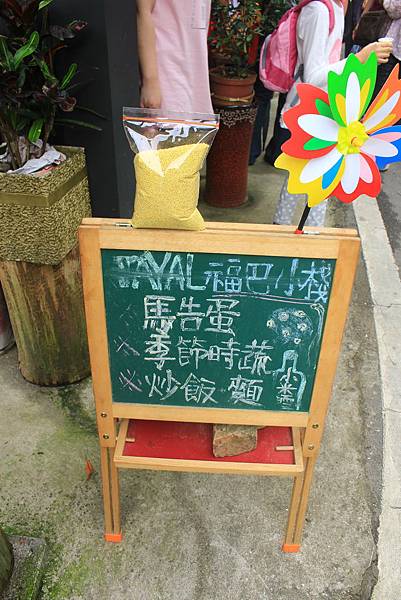 TAYAL福巴小棧
馬告蛋
※季節時蔬
※炒飯 麵
小米